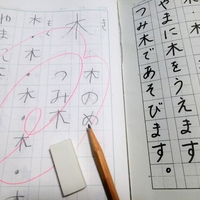 木
木のめ
つみ木
木・木・木
やまに木をうえます。
つみ木であそびます。